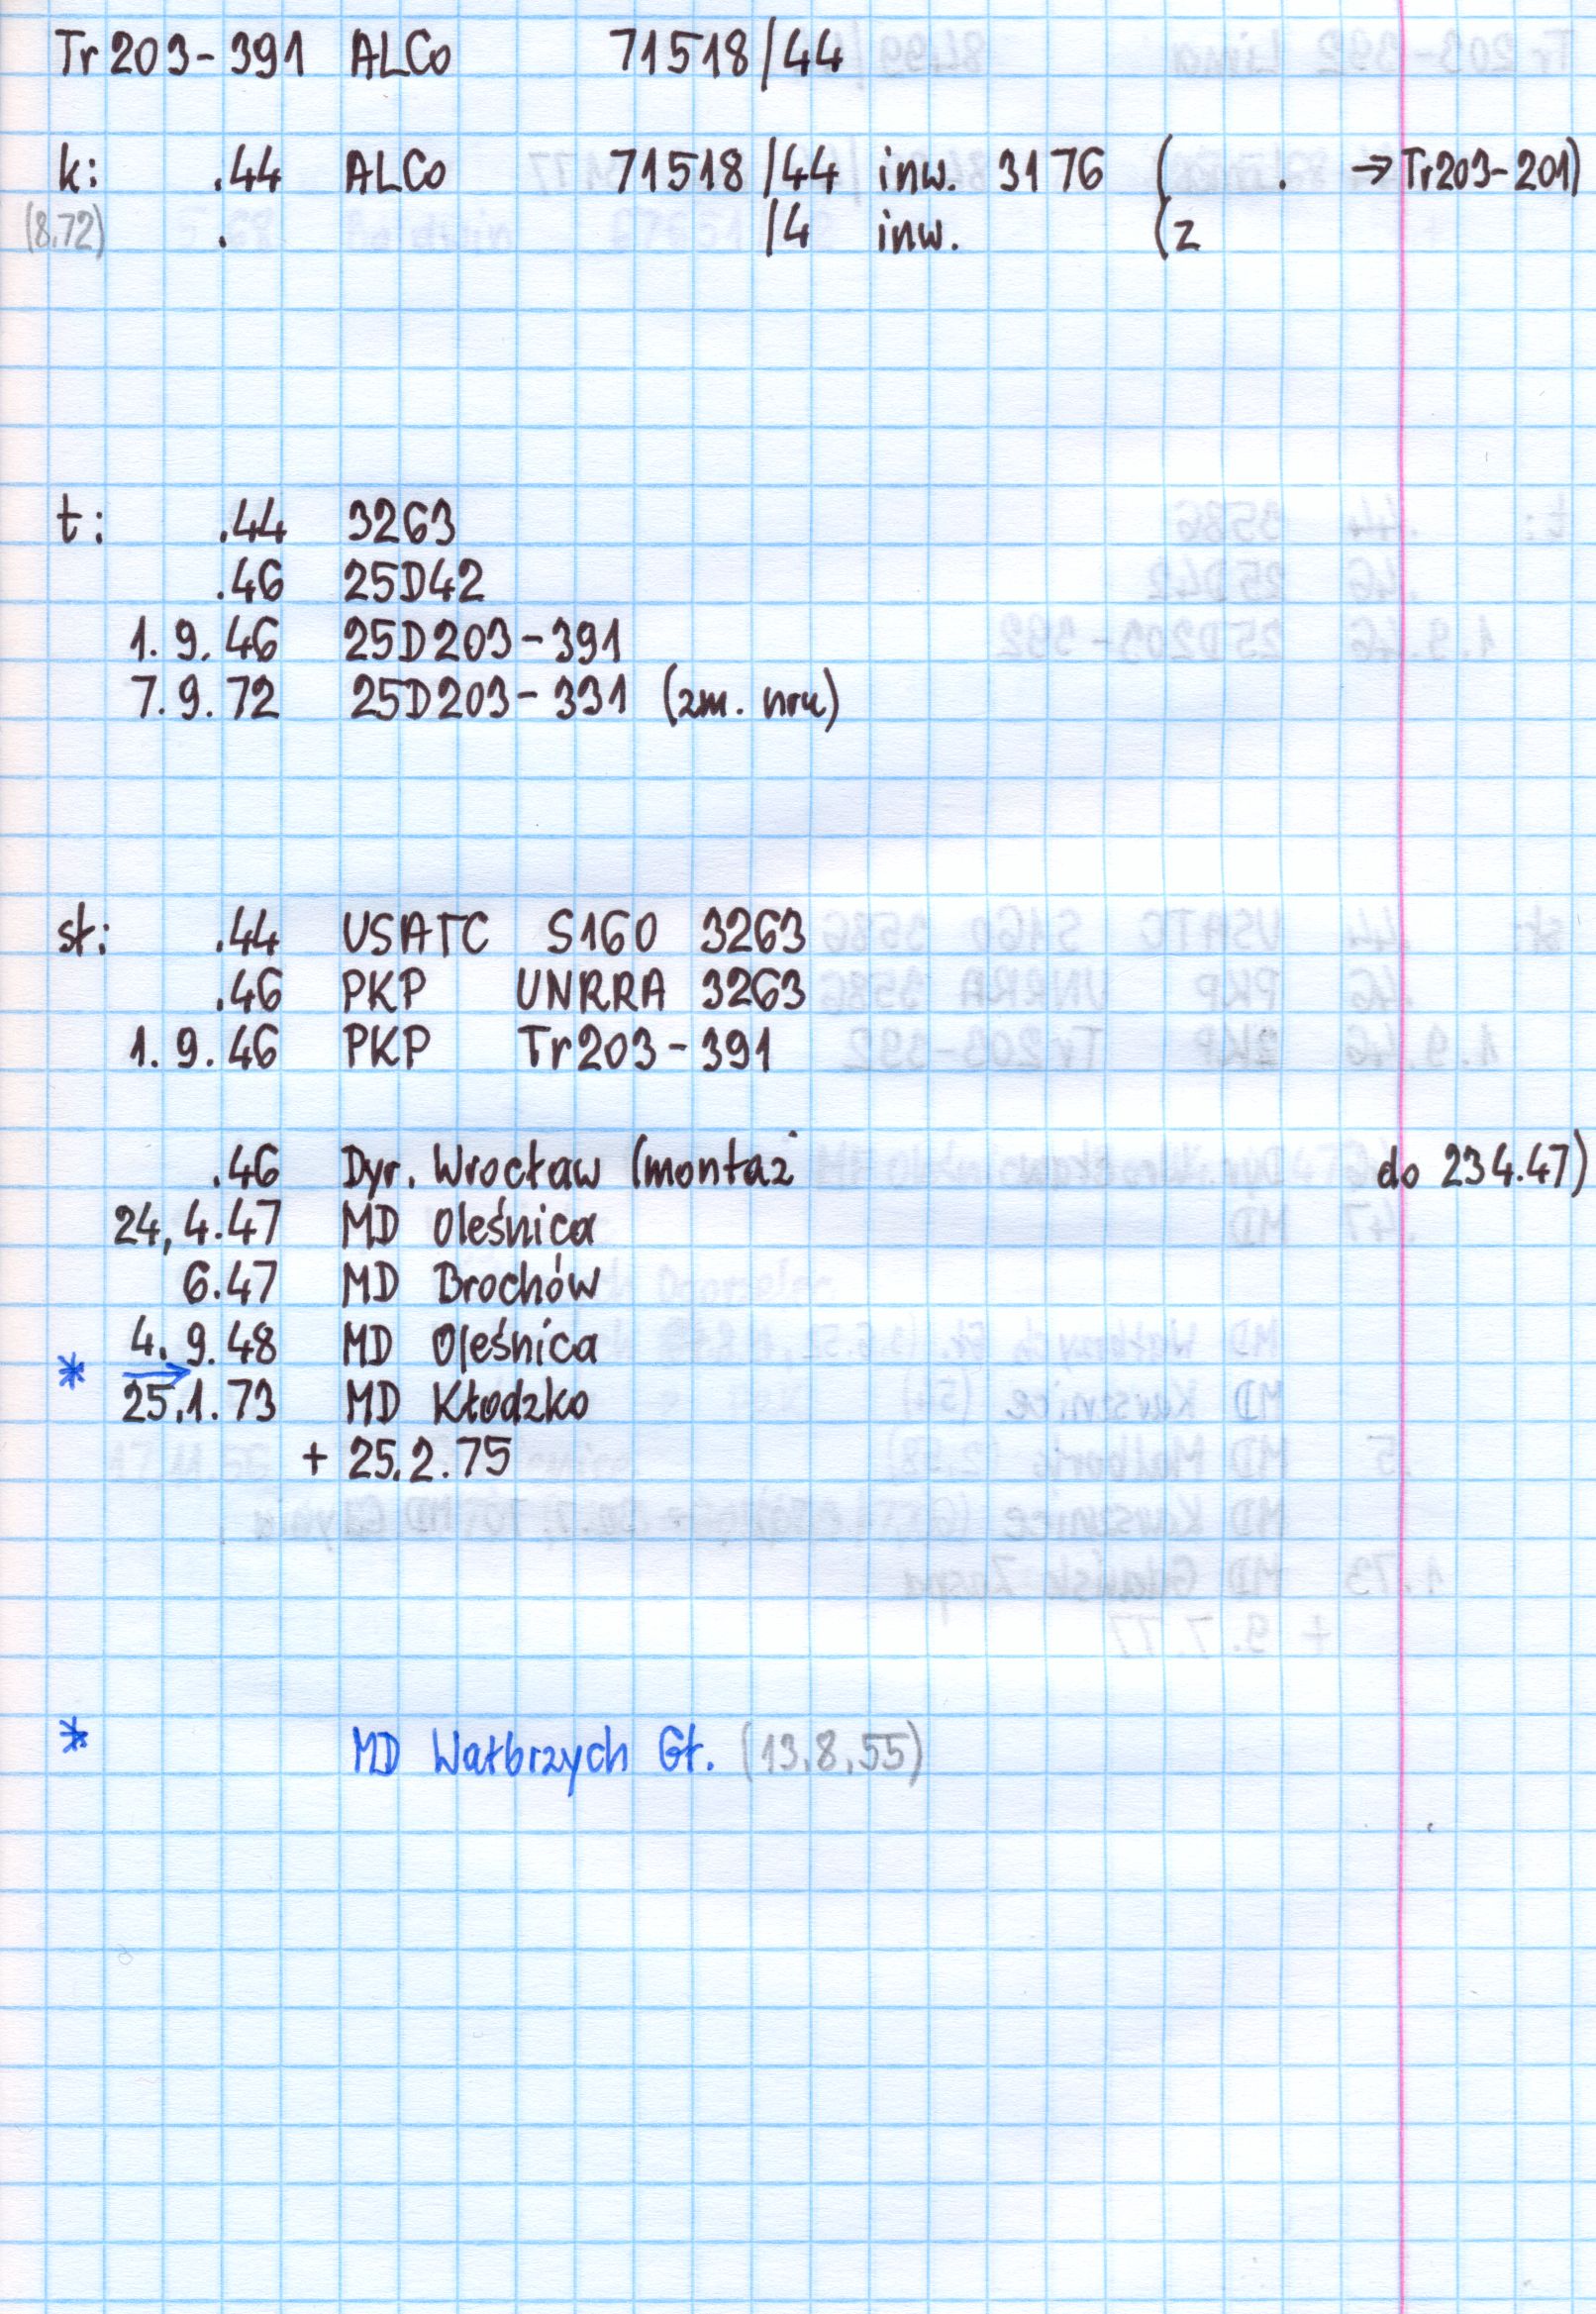 Tr203-391 ALCo 71518/44
k: .44 ALCo 71518/44 inw. 3176 ( . → Tr203-201)
(8.72) . /4 inw. (z
t: .44 3263
.46 25D42
1.9.46 25D203-391
7.9.72 25D203-331 (zm. nru)
st: .44 USATC S160 3263
.46 PKP UNRRA 3263
1.9.46 PKP Tr203-391
.46 Dyr. Wrocław (montaż do 234.47)
24,4.47 MD Oleśnica
6.47 MD Brochów
4.9.48 MD Oleśnica
* →
25.1.73 MD Kłodzko
+ 25.2.75
* MD Wałbrzych Gł. (13.8.55)